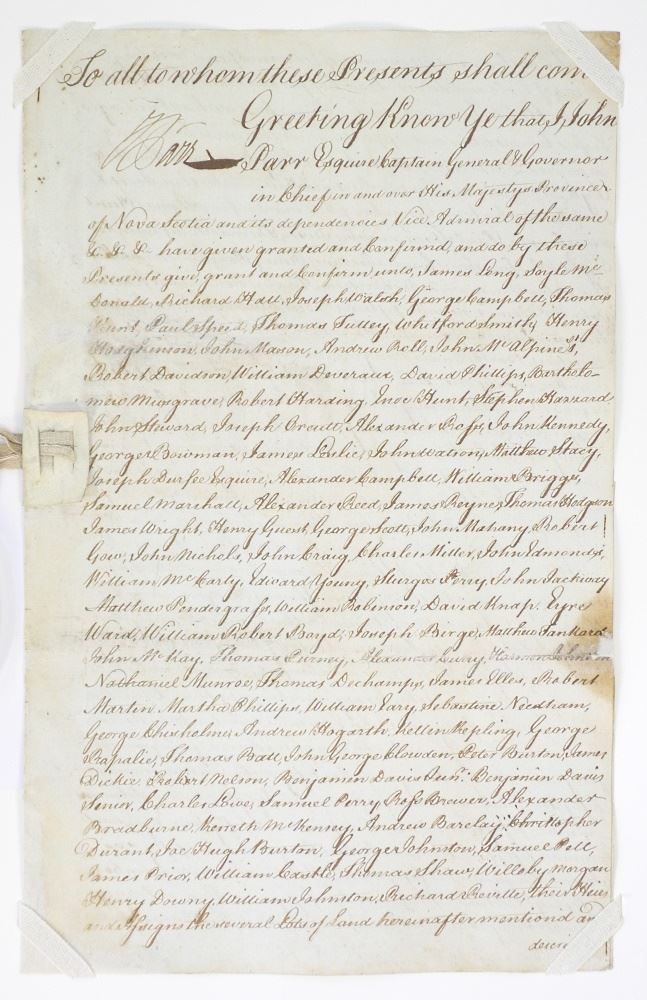 To all to whom these Presents shall com
Greeting Know Ye that I, John
Parr
Parr Esquire Captain General & Governor
in Chief in and over His Majestys Province
of Nova Scotia and its dependencies Vice Admiral of the same
&. &. &. have given granted and Confirmd, and do by these
Presents give, grant and Confirm unto, James Long, Soyle Mc
Donald, Richard Hall, Joseph Walsh, George Campbell, Thomas
Hunt, Paul Speed, Thomas Tulley, Whitford Smith, Henry
Hodgkinson, John Mason, Andrew Rell, John McAlpine's,
Robert Davidson, William Deveraux, David Phillips, Bartholo-
mew Musgrave, Robert Harding, Enoc Hunt, Stephen Hazzard
John Steward, Joseph Orcutt, Alexander Ross, John Kennedy,
George Bowman, James Leslie, John Watson, Matthew Stacy,
Joseph Durfee Esquire, Alexander Campbell, William Briggs,
Samuel Marshall, Alexander Reed, James Reyner, Thomas Hodgson
James Wright, Henry Guest, George Scott, John Mahany, Robert
Gow, John Nichols, John Craig, Charles Miller, John Edmonds,
William McCarly, Edward Young, Sturges Perry, John Jackway
Matthew Pendergrass, William Robinson, David Knap, Eyre
Ward, William Robert Boyd, Joseph Birge, Matthew Tankard
John McKay, Thomas Pirney, Alexander Harmon Johnson
Nathaniel Munroe, Thomas Dechamps, James Elles, Robert
Martin Martha Phillips, William Eary, Sebastine Needham,
George Chisholme, Andrew Hogarth, Kepling, George
Rapalie, Thomas Ball, John George Clowden, Peter Burton, James
Dickie, Robert Nelson, Benjamin Davis Junr. Benjamin Davis
Senior, Charles Lowe, Samuel Perry, Ross Brewer, Alexander
Bradburne, Kenneth McKensey, Andrew Barclay, Christopher
Durant, Hugh Burton, George Johnston, Samuel Pell,
James Prior, William Castle, Thomas Shaw, Willeby morgan
Henry Downy, William Johnston, Richard Reville, their Heirs
and Assigns the several Lots of Land hereinafter mentiond an
descri